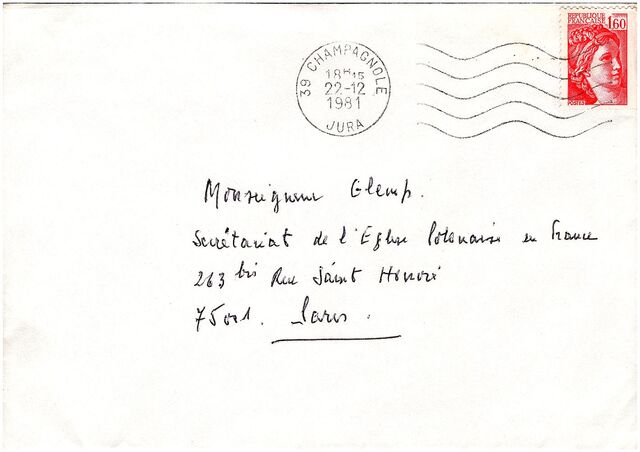 REPUBLIQUE FRANÇAISE 1,60
POSTES
39 CHAMPAGNOLE
18H15
22-12
1981
JURA
Monseigneur Glemp.
Secrétariat de l'Eglise Polonaise en France
263 bis Rue Saint Honoré
75001. Paris.